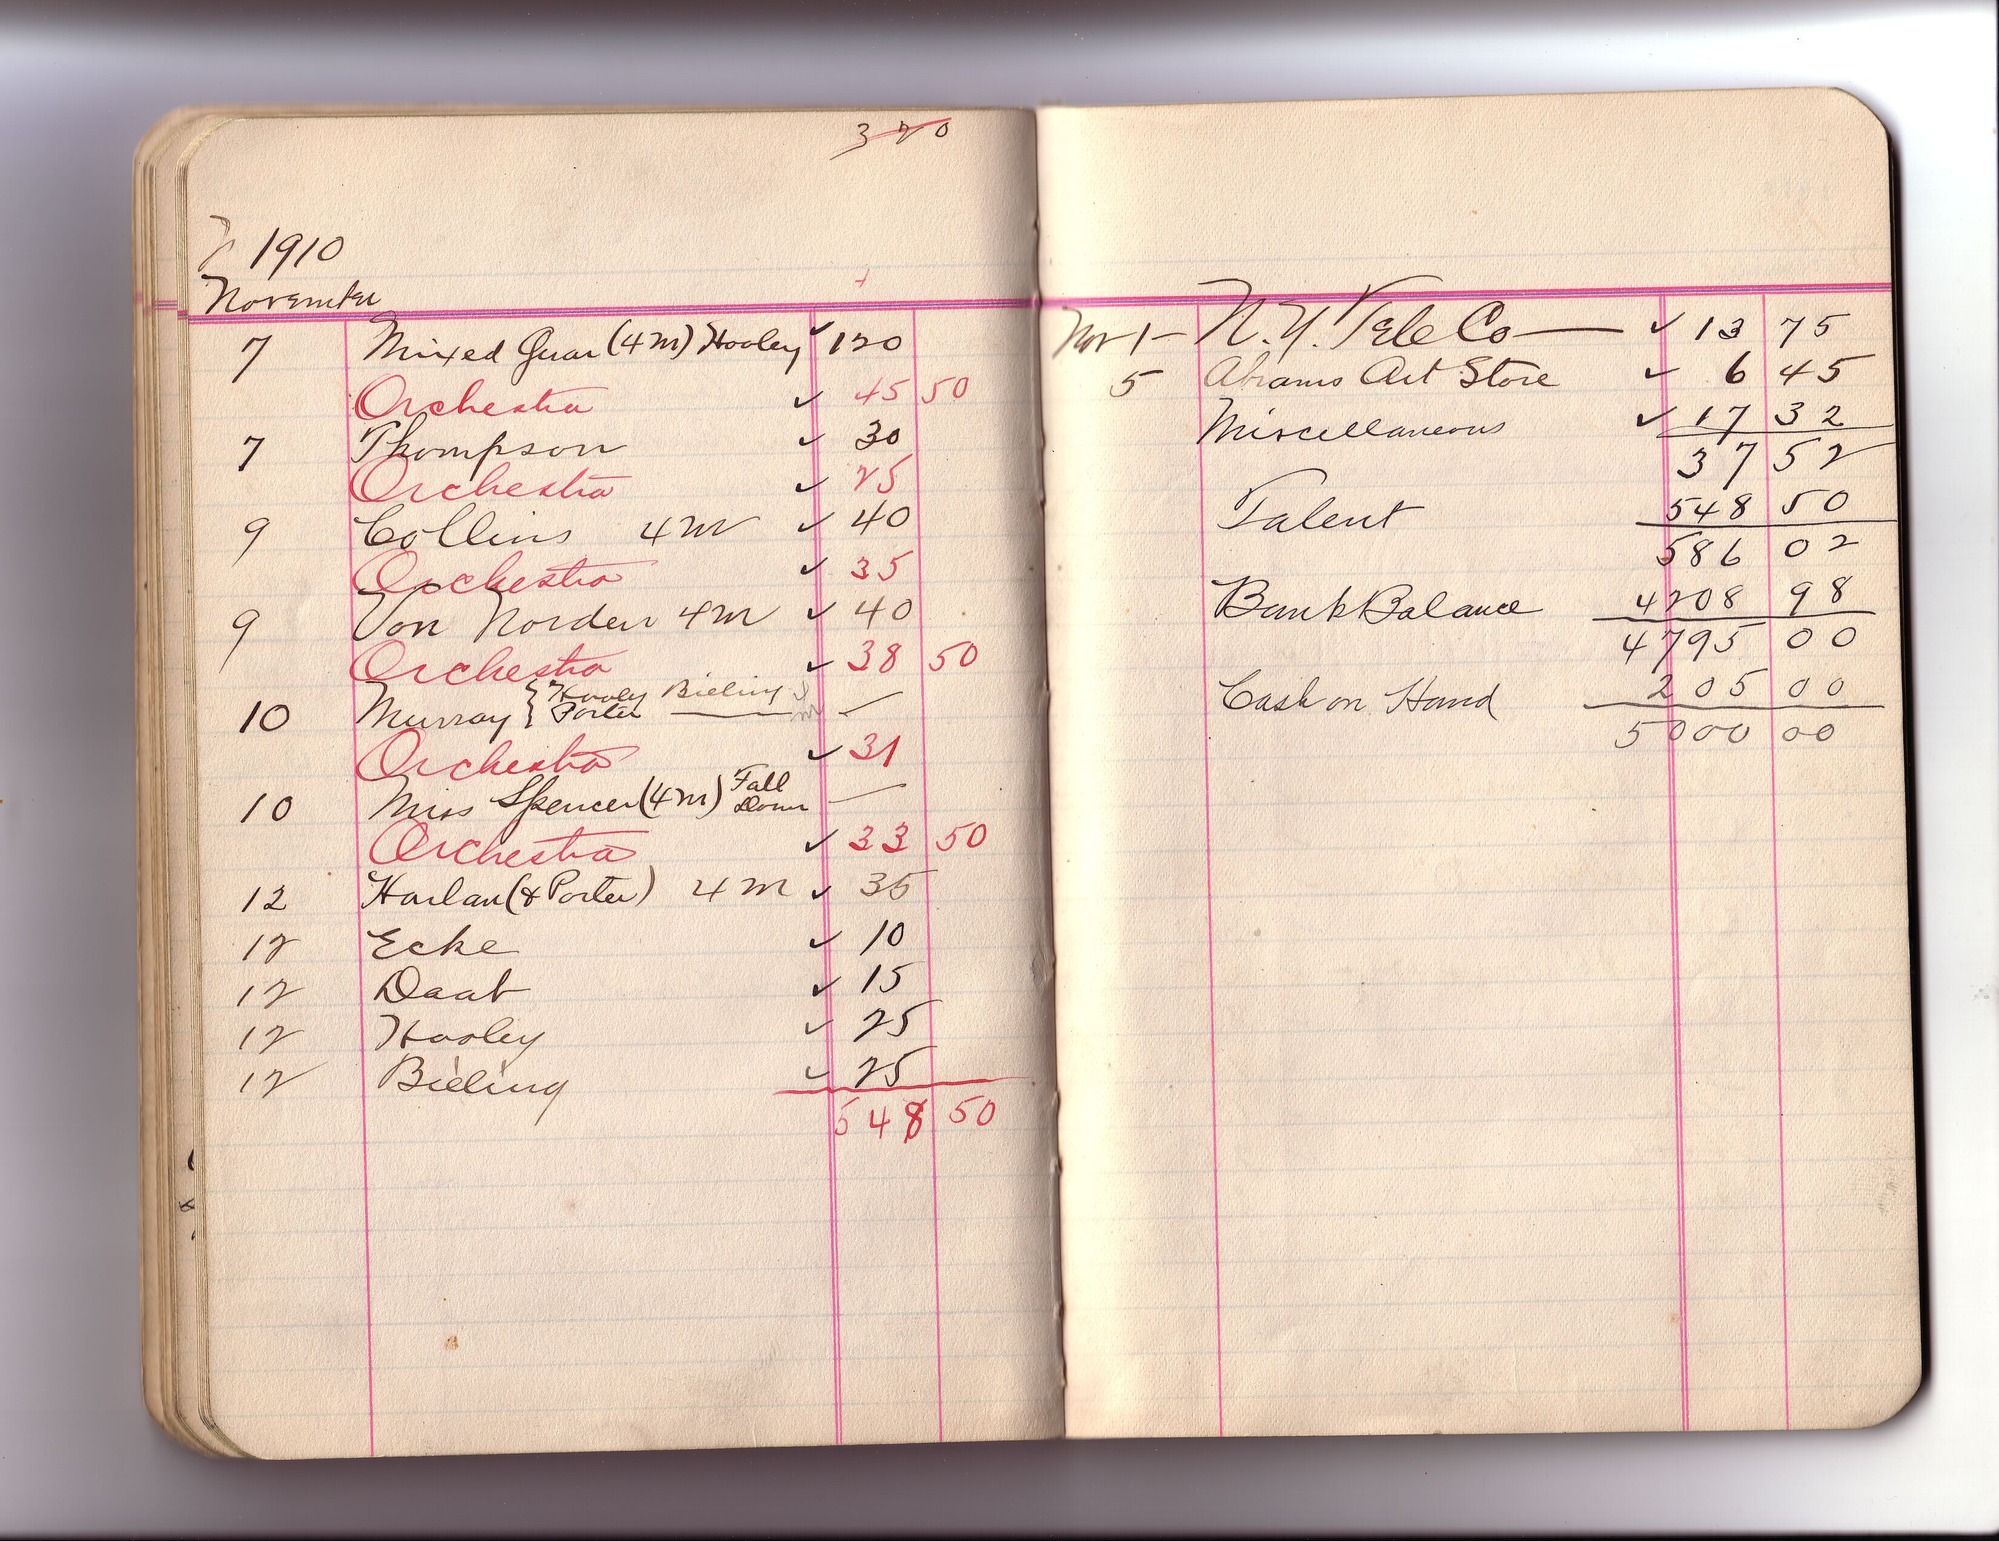 320
1910
November
7 Mixed Quar (4 M) Hooley ✓ 120
Orchestra ✓ 45 50
7 Thompson ✓ 30
Orchestra ✓ 25
9 Collins 4 M ✓ 40
Orchestra ✓ 35
9 Von Norden 4 M ✓ 40
Orchestra ✓ 38 50
10 Murray { Hooley Bieling
Porter —
Orchestra ✓ 31
10 Miss Spencer (4 M) Fall Down —
Orchestra ✓ 33 50
12 Harlan (& Porter) 4 M ✓ 35
12 Ecke ✓ 10
12 Daab ✓ 15
12 Hooley ✓ 25
12 Bieling ✓ 25
548 50
Nov 1 - N. Y. Tele Co — ✓ 13 75
5 Abrams Art Store ✓ 6 45
Miscellaneous ✓ 17 32
37 52
Talent 548 50
586 02
Bank Balance 4208 98
4795 00
Cash on Hand 205 00
5000 00